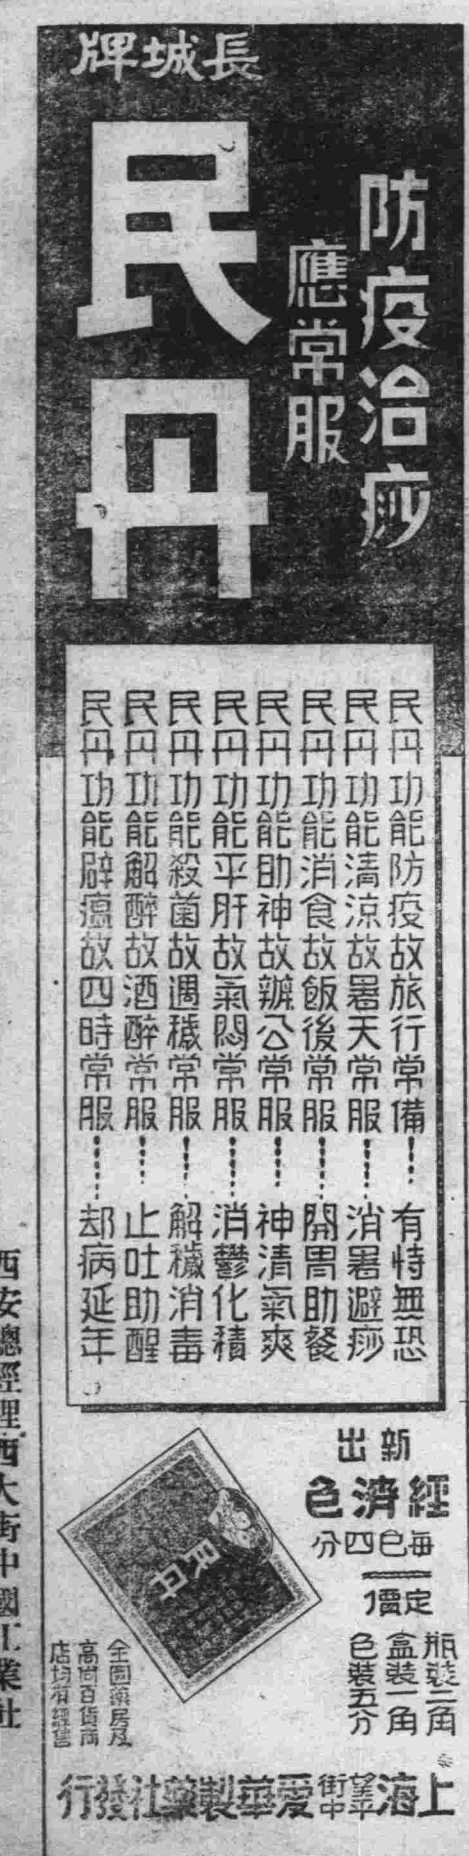 長城牌
防疫治痧
應常服
民丹
民丹功能防疫故旅行常備……有恃無恐
民丹功能清涼故暑天常服……消暑避痧
民丹功能消食故飯後常服……開胃助餐
民丹功能助神故辦公常服……神清氣爽
民丹功能平肝故氣悶常服……消鬱化積
民丹功能殺菌故遇穢常服……解穢消毒
民丹功能解醉故酒醉常服……止吐助醒
民丹功能辟瘟故四時常服……却病延年
新出
經濟包
每包四分
定價
瓶裝二角
盒裝一角
包裝五分
民丹
全國藥房及
高尚百貨商
店均有經售
上海望平街中愛華製藥社發行
西安總經理西大街中國工業社